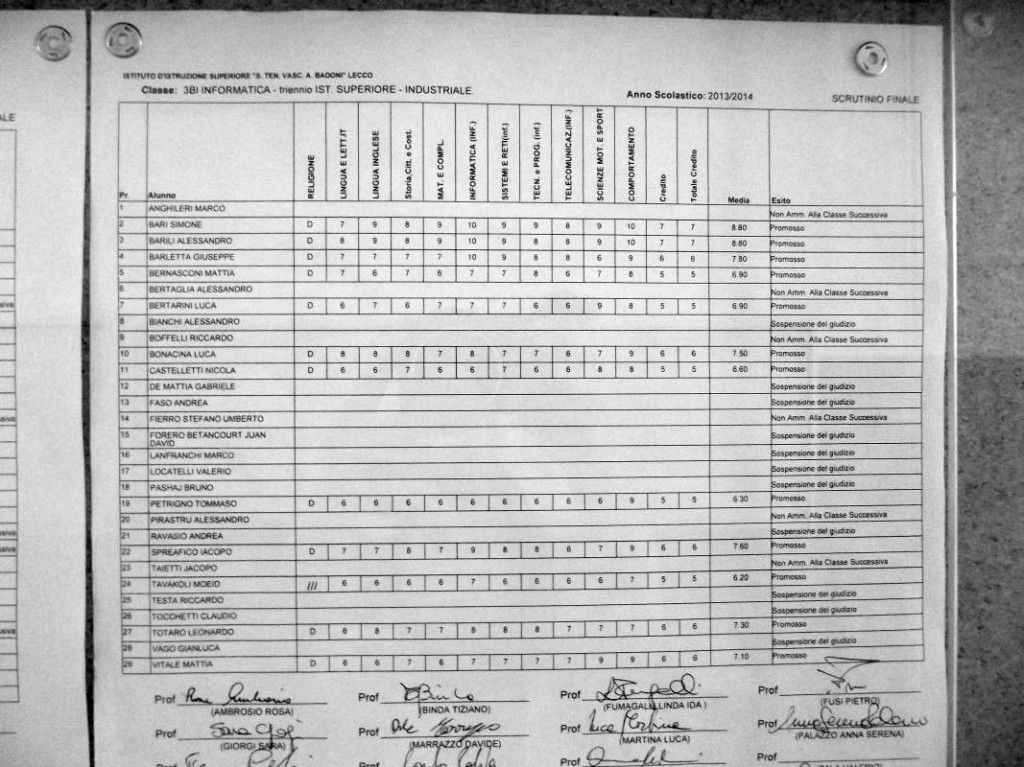 ISTITUTO D'ISTRUZIONE SUPERIORE "S. TEN. VASC. A. BADONI" LECCO
Classe: 3BI INFORMATICA - triennio IST. SUPERIORE - INDUSTRIALE Anno Scolastico: 2013/2014 SCRUTINIO FINALE
Pr. Alunno RELIGIONE LINGUA E LETT.IT LINGUA INGLESE Storia,Citt. e Cost. MAT. E COMPL. INFORMATICA (INF.) SISTEMI E RETI(inf.) TECN. e PROG. (inf.) TELECOMUNICAZ.(INF.) SCIENZE MOT. E SPORT COMPORTAMENTO Credito Totale Credito Media Esito
1 ANGHILERI MARCO Non Amm. Alla Classe Successiva
2 BARI SIMONE D 7 9 8 9 10 9 9 8 9 10 7 7 8.80 Promosso
3 BARILI ALESSANDRO D 8 9 8 9 10 9 8 8 9 10 7 7 8.80 Promosso
4 BARLETTA GIUSEPPE D 7 7 7 7 10 9 8 8 6 9 6 6 7.80 Promosso
5 BERNASCONI MATTIA D 7 6 7 6 7 7 8 6 7 8 5 5 6.90 Promosso
6 BERTAGLIA ALESSANDRO Non Amm. Alla Classe Successiva
7 BERTARINI LUCA D 6 7 6 7 7 7 6 6 9 8 5 5 6.90 Promosso
8 BIANCHI ALESSANDRO Sospensione del giudizio
9 BOFFELLI RICCARDO Non Amm. Alla Classe Successiva
10 BONACINA LUCA D 8 8 8 7 8 7 7 6 7 9 6 6 7.50 Promosso
11 CASTELLETTI NICOLA D 6 6 7 6 6 7 6 6 8 8 5 5 6.60 Promosso
12 DE MATTIA GABRIELE Sospensione del giudizio
13 FASO ANDREA Sospensione del giudizio
14 FIERRO STEFANO UMBERTO Non Amm. Alla Classe Successiva
15 FORERO BETANCOURT JUAN DAVID Sospensione del giudizio
16 LANFRANCHI MARCO Sospensione del giudizio
17 LOCATELLI VALERIO Sospensione del giudizio
18 PASHAJ BRUNO Sospensione del giudizio
19 PETRIGNO TOMMASO D 6 6 6 6 6 6 6 6 6 9 5 5 6.30 Promosso
20 PIRASTRU ALESSANDRO Non Amm. Alla Classe Successiva
21 RAVASIO ANDREA Sospensione del giudizio
22 SPREAFICO IACOPO D 7 7 8 7 9 8 8 6 7 9 6 6 7.60 Promosso
23 TAIETTI JACOPO Non Amm. Alla Classe Successiva
24 TAVAKOLI MOEID /// 6 6 6 6 7 6 6 6 6 7 5 5 6.20 Promosso
25 TESTA RICCARDO Sospensione del giudizio
26 TOCCHETTI CLAUDIO Sospensione del giudizio
27 TOTARO LEONARDO D 6 8 7 7 8 8 8 7 7 7 6 6 7.30 Promosso
28 VAGO GIANLUCA Sospensione del giudizio
29 VITALE MATTIA D 6 6 7 6 7 7 7 7 9 9 6 6 7.10 Promosso
Prof Prof Prof Prof
(AMBROSIO ROSA) (BINDA TIZIANO) (FUMAGALLI LINDA IDA ) (FUSI PIETRO)
Prof Prof Prof Prof
(GIORGI SARA) (MARRAZZO DAVIDE) (MARTINA LUCA) (PALAZZO ANNA SERENA)
Prof Prof Prof Prof